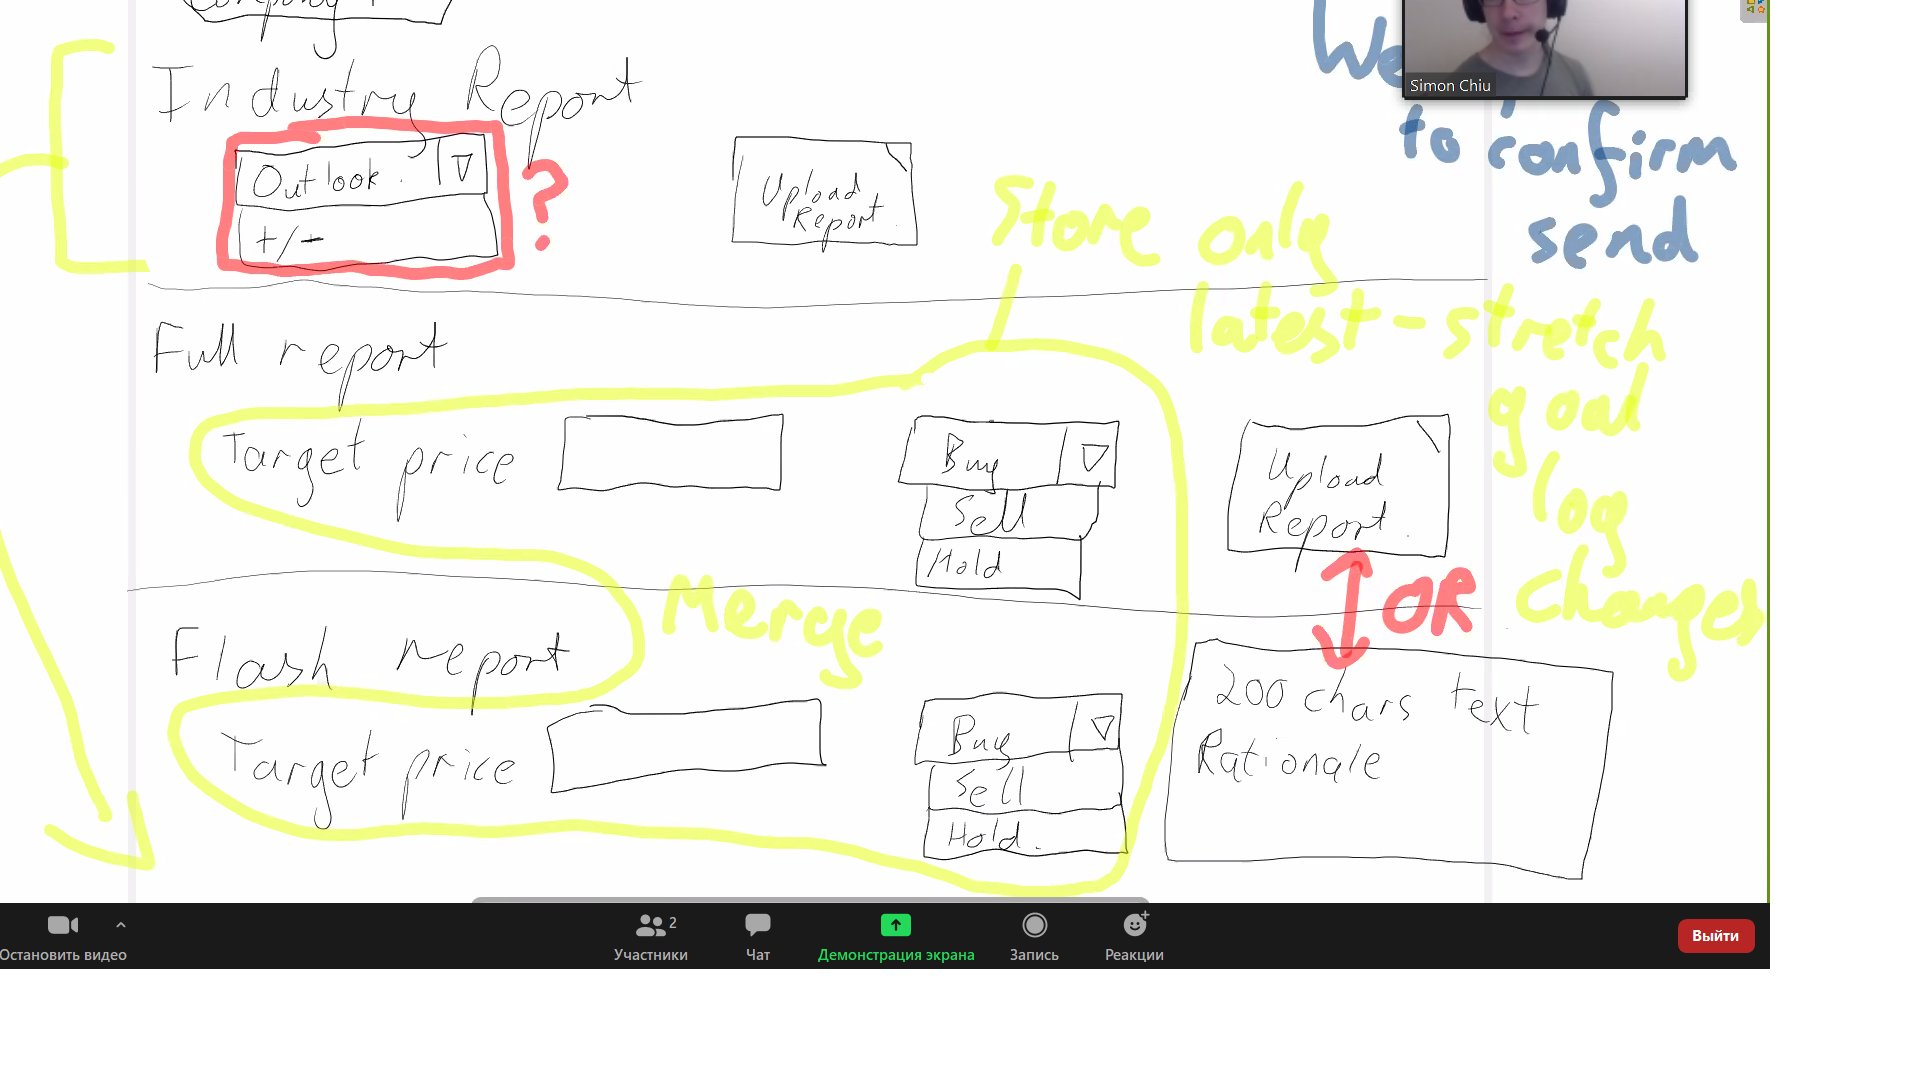 Company
Industry Report
Outlook.
+/-
?
Upload
Report.
We
Simon Chiu
to confirm
send
Store only
latest - stretch
goal
log
changes
Full report
Target price
Buy
Sell
Hold
Upload
Report.
OR
Merge
Flash report
Target price
Buy
Sell
Hold.
200 chars text
Rationale
Остановить видео
Участники
2
Чат
Демонстрация экрана
Запись
Реакции
Выйти